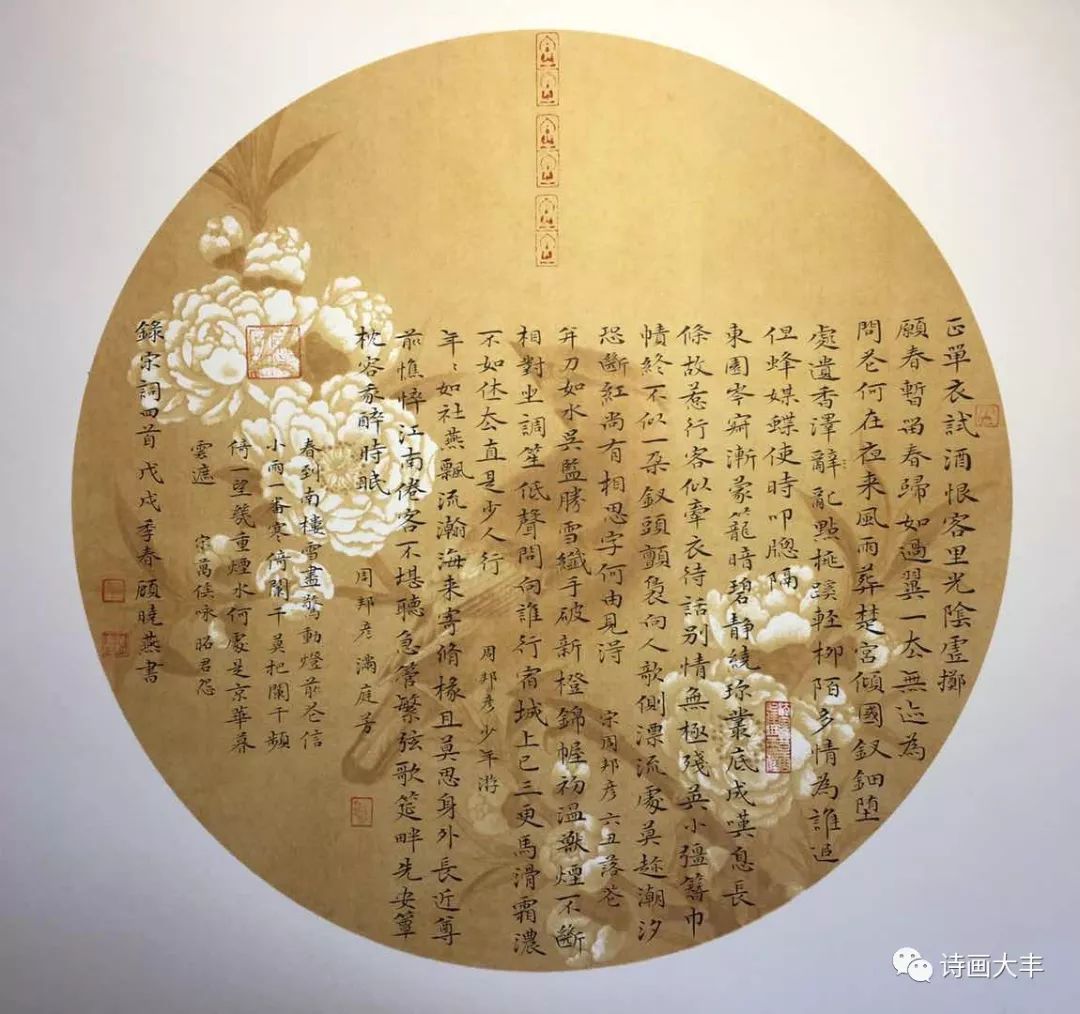 正單衣試酒恨客里光陰虛擲
願春暫留春歸如過翼一去無迹為
問花何在夜来風雨葬楚宮傾國釵鈿堕
處遺香澤辭亂點桃蹊輕柳陌多情為誰追
但蜂媒蝶使時叩牕隔
東園岑寂漸蒙籠暗碧靜繞珎叢底成嘆息長
條故惹行客似牽衣待話别情無極殘英小彊簪巾
幘終不似一朵釵頭顫裊向人歌側漂流處莫趂潮汐
恐斷紅尚有相思字何由見淂
宋周邦彦六丑落花
并刀如水吴盐勝雪纖手破新橙錦幄初溫獸煙不斷
相對坐調笙低聲問向誰行宿城上已三更馬滑霜濃
不如休去直是少人行
周邦彦少年游
年〻如社燕飄流瀚海来寄脩椽且莫思身外長近尊
前憔悴江南倦客不堪聽急管繁弦歌筵畔先安簟
枕容我醉時眠
周邦彦滿庭芳
春到南樓雪盡驚動燈前花信
小雨一番寒倚闌干莫把闌干頻
倚一望幾重煙水何處是京華暮
雲遮
宋萬俟咏昭君怨
錄宋詞四首戊戌季春顧曉燕書
诗画大丰